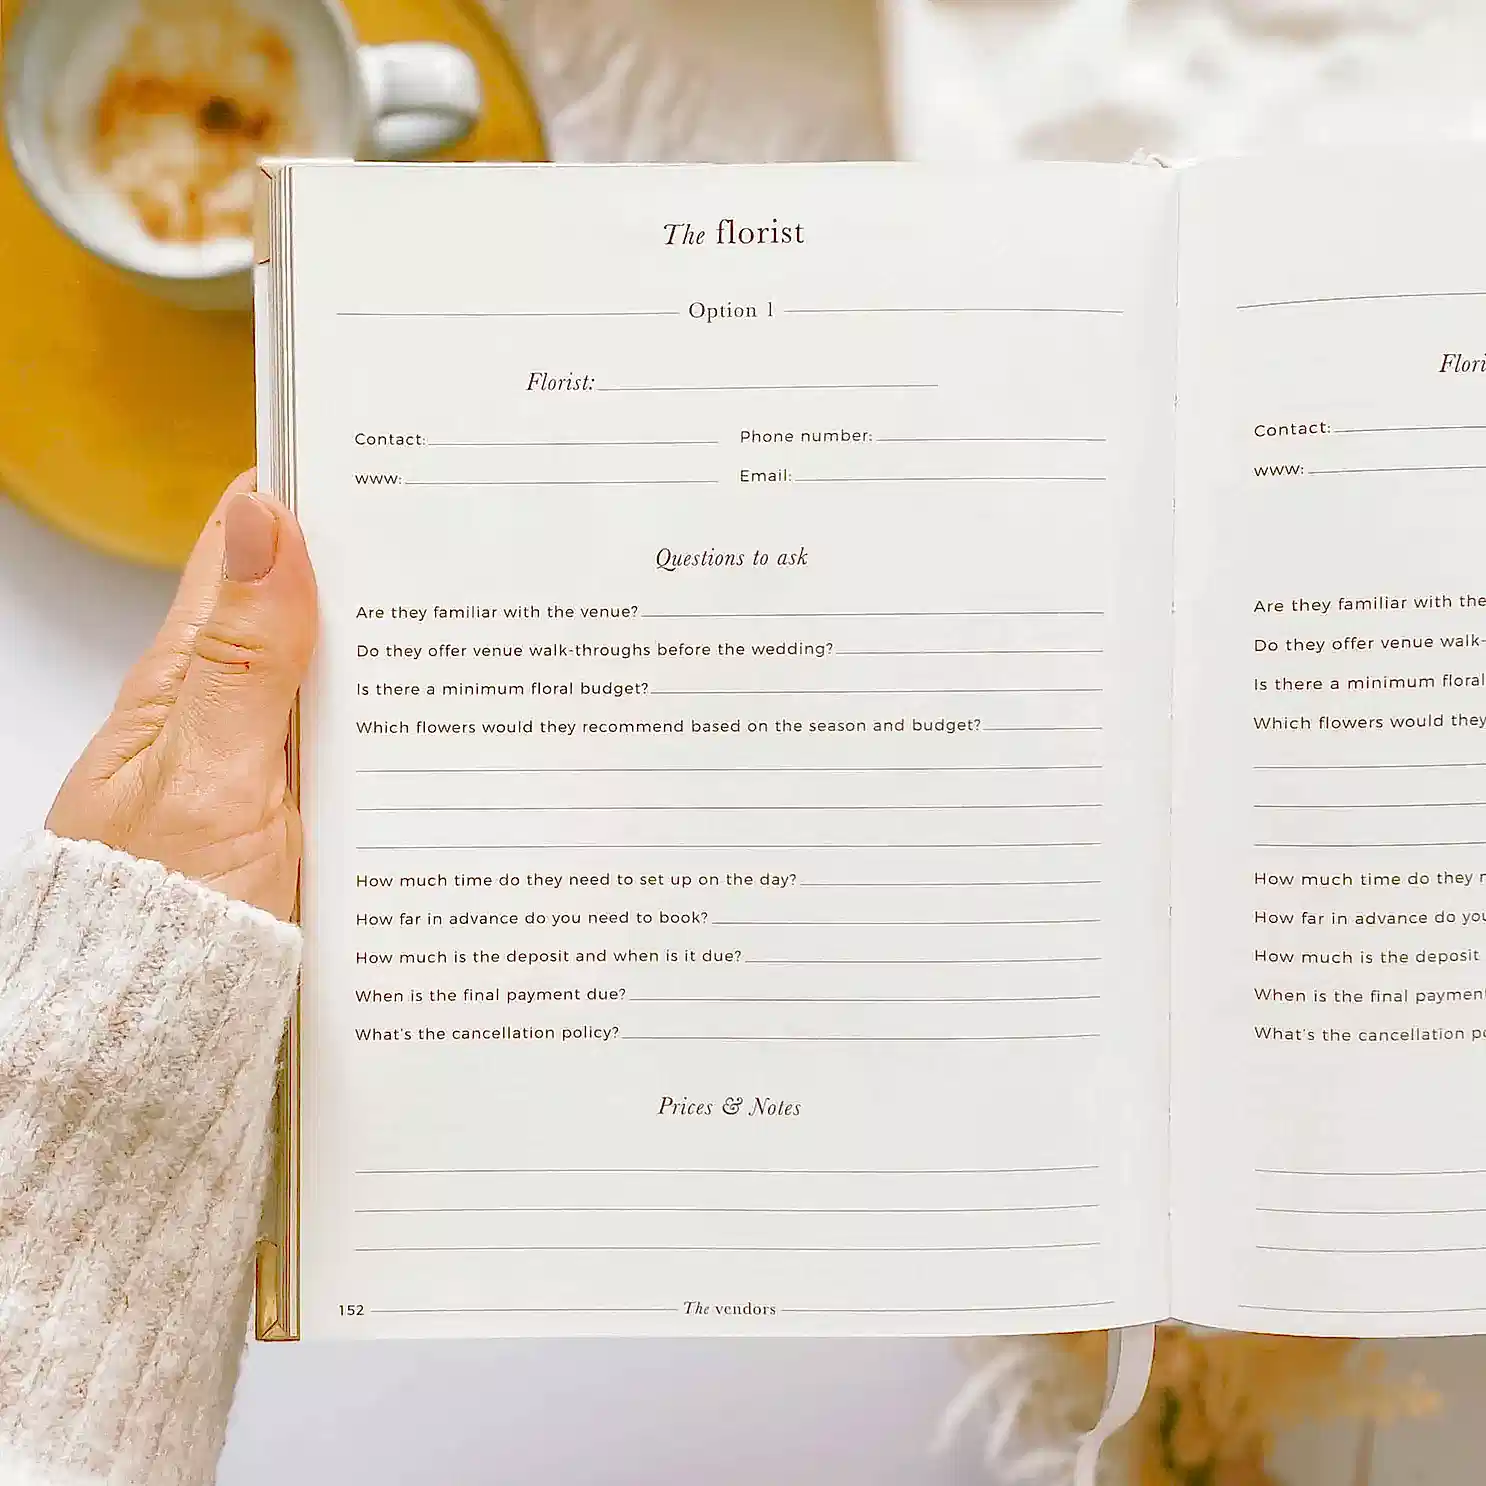 The florist
Option 1
Florist:
Contact:
Phone number:
www:
Email:
Questions to ask
Are they familiar with the venue?
Do they offer venue walk-throughs before the wedding?
Is there a minimum floral budget?
Which flowers would they recommend based on the season and budget?
How much time do they need to set up on the day?
How far in advance do you need to book?
How much is the deposit and when is it due?
When is the final payment due?
What's the cancellation policy?
Prices & Notes
152
The vendors
Flori
Contact:
www:
Are they familiar with the
Do they offer venue walk-
Is there a minimum floral
Which flowers would they
How much time do they
How far in advance do you
How much is the deposit
When is the final payment
What's the cancellation